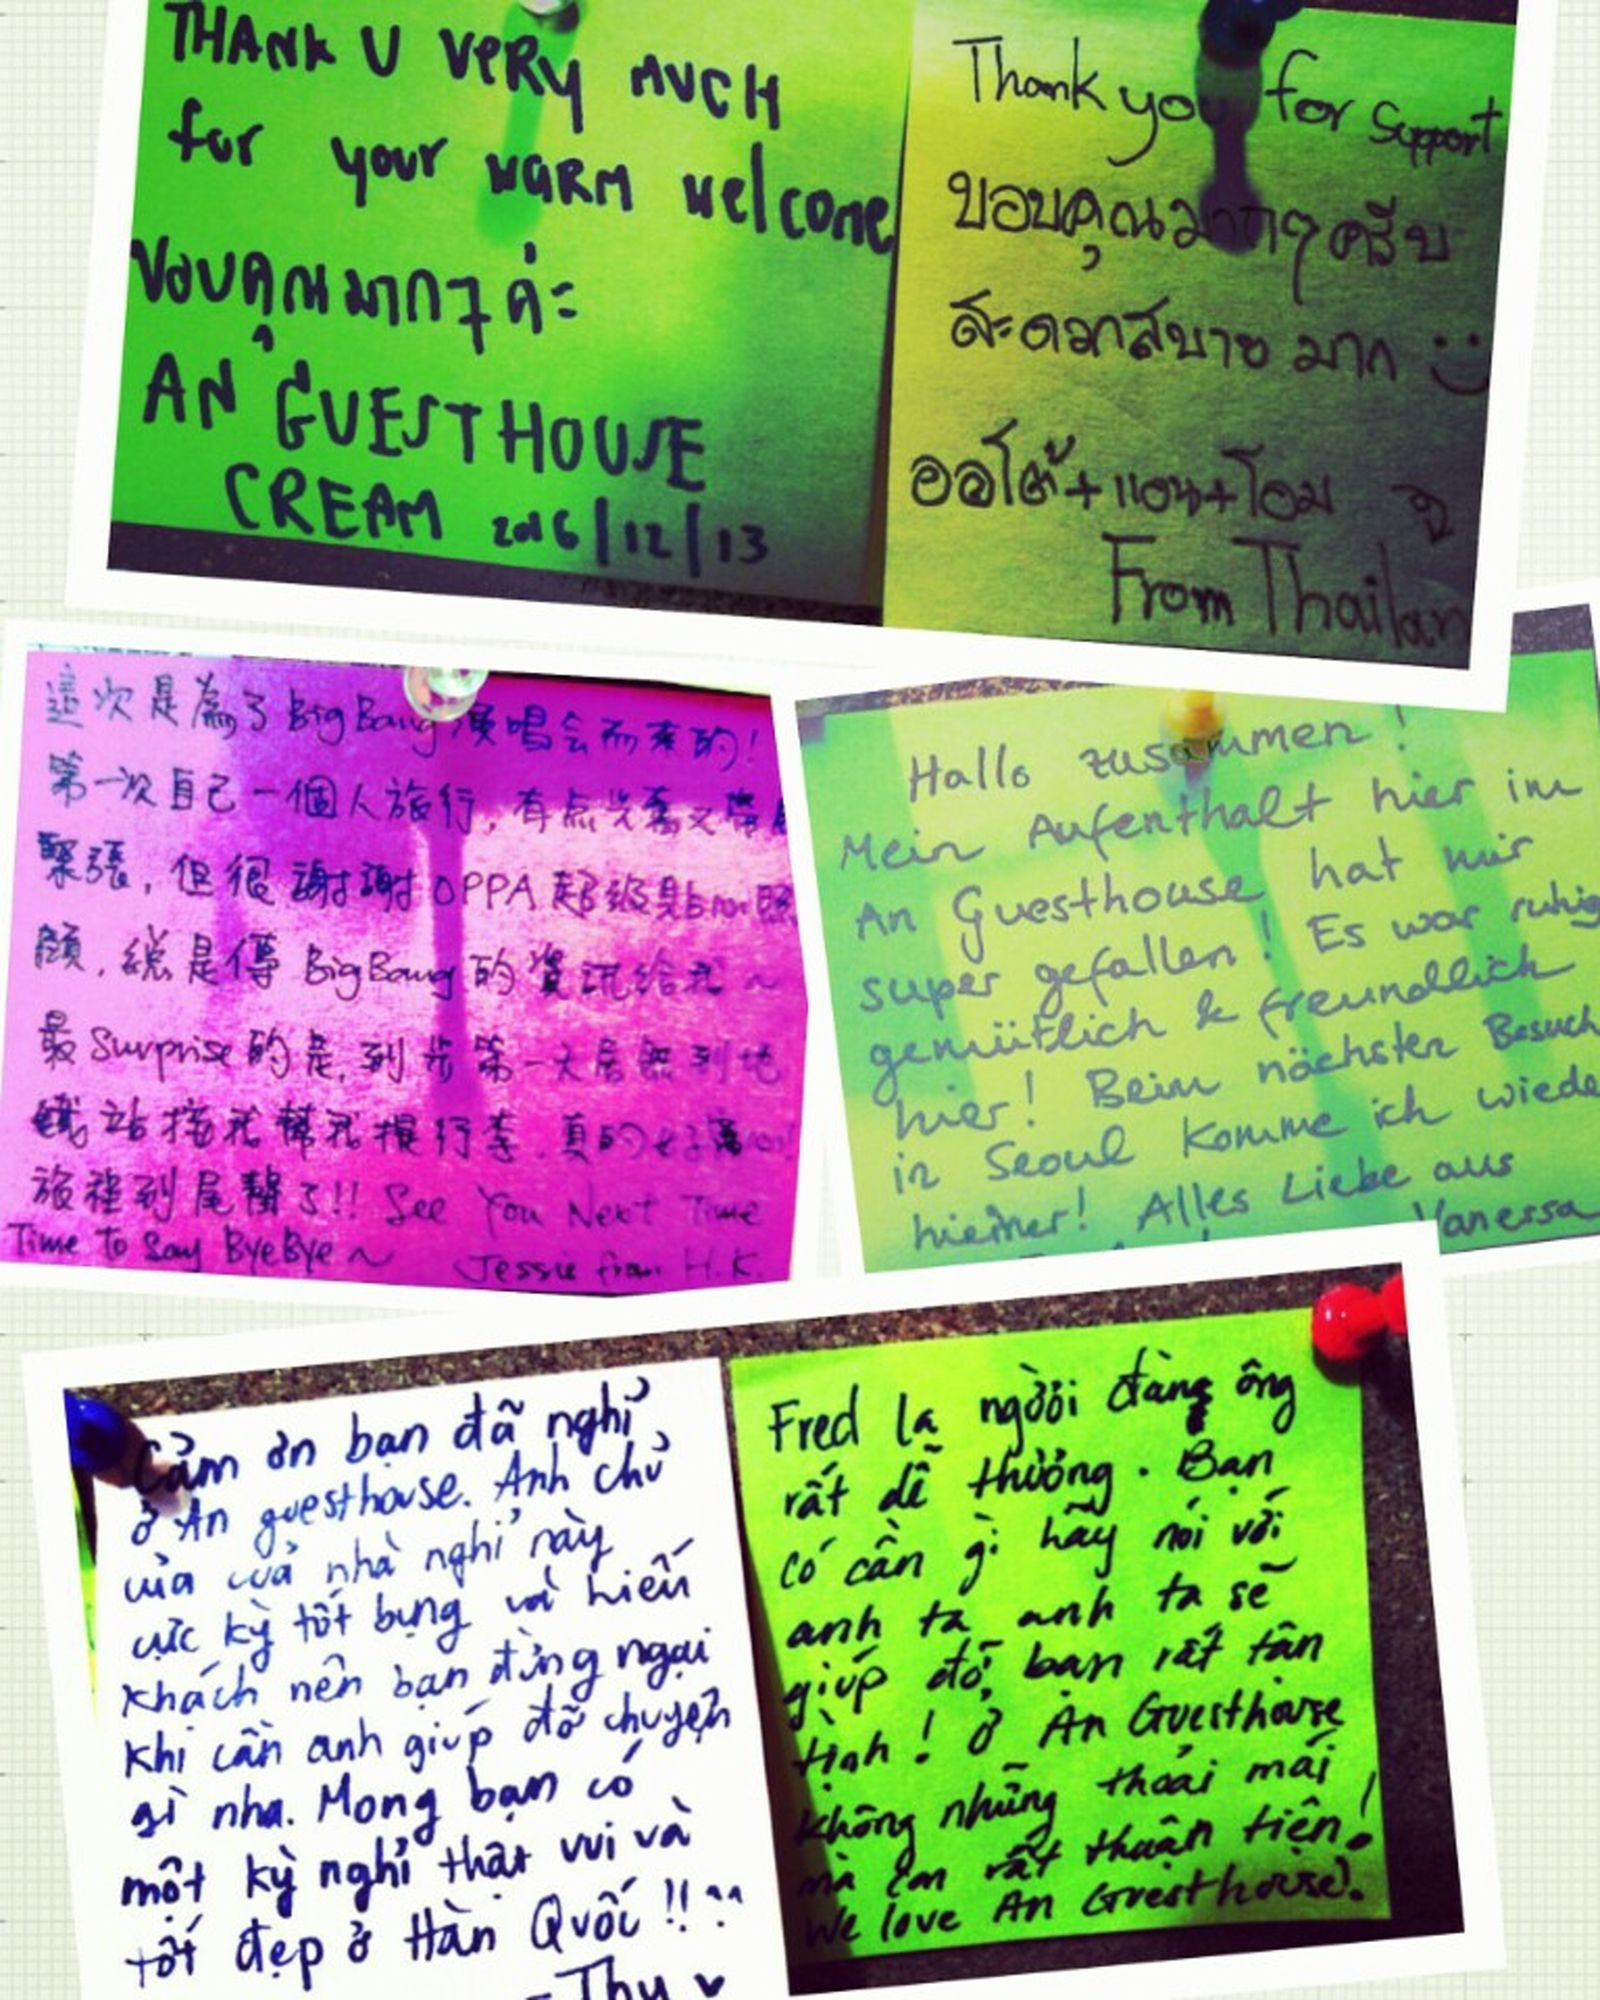 THANK U VERY MUCH
for your WARM welcome
ขอบคุณมากๆ ค่ะ
AN GUESTHOUSE
CREAM 2016/12/13
Thank you for support
ขอบคุณมากๆครับ
สะดวกสบาย มาก :)
ออโต้+แอน+โอม
From Thailan
這次是為了BigBang演唱会而來的!
第一次自己一個人旅行,有点兴奮又帶
緊張,但很謝謝OPPA超級貼心照
顧,總是傳BigBang的資訊給我~
最Surprise的是,到步第一天居然到地
鐵站接我幫我提行李,真的好
旅程到尾聲了!! See You Next Time
Time To Say ByeBye~ Jessie from H.K.
Hallo zusammen!
Mein Aufenthalt hier im
An Guesthouse hat mir
super gefallen! Es war ruhig
gemütlich & freundlich
hier! Beim nächsten Besuch
in Seoul komme ich wiede
hierher! Alles Liebe aus
Vanessa
Cảm ơn bạn đã nghỉ
ở An guesthouse. Anh chủ
của nhà nghỉ này
cực kỳ tốt bụng và hiếu
khách nên bạn đừng ngại
khi cần anh giúp đỡ chuyện
gì nha. Mong bạn có
một kỳ nghỉ thật vui và
tốt đẹp ở Hàn Quốc!! ^^
- Thu ♥
Fred la người đàng ông
rất dễ thương. Bạn
có cần gì hãy nói với
anh ta anh ta sẽ
giúp đỡ bạn rất tận
tình! Ở An Guesthouse
không những thoải mái
mà còn rất thuận tiện!
We love An Guesthouse.